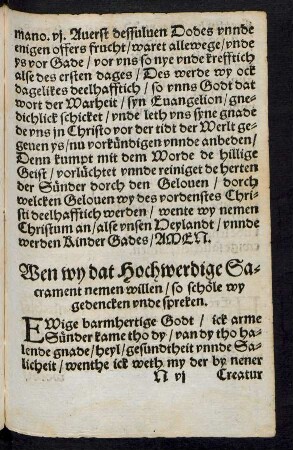 mano. vj. Auerst dessuluen Dodes vnnde
enigen offers frucht / waret allewege / vnde
ys vor Gade / vor vns so nye vnde krefftich
alse des ersten dages / Des werde wy ock
dagelikes deelhafftich / so vnns Godt dat
wort der Warheit / syn Euangelion / gne-
dichlick schicket / vnde leth vns syne gnade
de vns jn Christo vor der tidt der Werlt ge-
geuen ys / nu vorkündigen vnnde anbeden /
Denn kumpt mit dem Worde de hillige
Geist / vorlüchtet vnnde reiniget de herten
der Sünder dorch den Gelouen / dorch
welcken Gelouen wy des vordenstes Chri-
sti deelhafftich werden / wente wy nemen
Christum an / alse vnsen Heylandt / vnnde
werden Kinder Gades / AMEN.
Wen wy dat Hochwerdige Sa-
crament nemen willen / so schöle wy
gedencken vnde spreken.
EWige barmhertige Godt / ick arme
Sünder kame tho dy / van dy tho ha-
lende gnade / heyl / gesundtheit vnnde Sa-
licheit / wenthe ick weth my der by nener
N vj Creatur